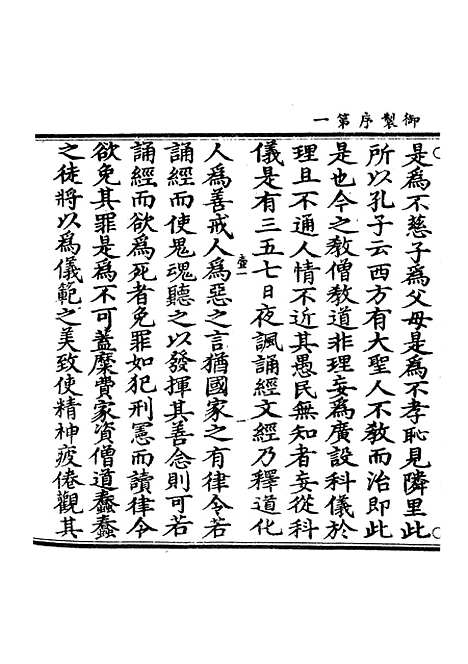 御製序第一
是為不慈子為父母是為不孝恥見隣里此
所以孔子云西方有大聖人不教而治即此
是也今之教僧教道非理妄為廣設科儀於
理且不通人情不近其愚民無知者妄從科
儀是有三五七日夜諷誦經文經乃釋道化
壹一
人為善戒人為惡之言猶國家之有律令若
誦經而使鬼魂聽之以發揮其善念則可若
誦經而欲為死者免罪如犯刑憲而讀律令
欲免其罪是為不可蓋糜費家資僧道蠢蠢
之徒將以為儀範之美致使精神疲倦觀其